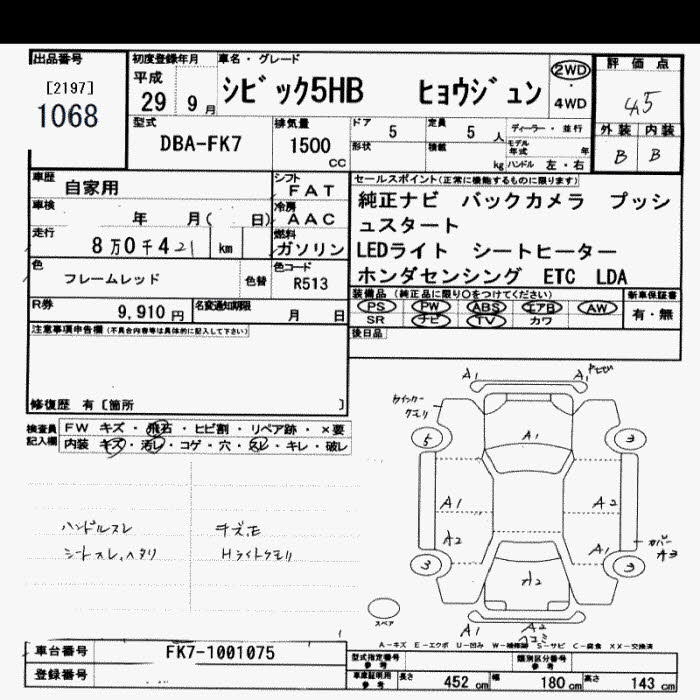 出品番号
[2197]
1068
初度登録年月
平成
29 9月
車名・グレード
シビック5HB ヒョウジュン
2WD
・4WD
評価点
4.5
外装 内装
B B
型式
DBA-FK7
排気量
1500
CC
ドア 5
定員 5 人
ディーラー・並行
形状
積載 kg
モデル年式 年
ハンドル 左・右
車歴
自家用
シフト
FAT
車検
年 月( 日)
冷房
AAC
走行
8万0千421 km
燃料
ガソリン
色
フレームレッド
色替
色コード
R513
R券
9,910円
名変通知期限
月 日
セールスポイント(正常に機能するものに限ります)
純正ナビ バックカメラ プッシ
ュスタート
LEDライト シートヒーター
ホンダセンシング ETC LDA
装備品 (純正品に限り○をつけてください)
PS PW ABS エアB AW
SR ナビ TV カワ
新車保証書
有・無
後日品
注意事項申告欄(不具合内容等は具体的に記入して下さい)
修復歴 有〔箇所 〕
検査員
記入欄
FW キズ・飛石・ヒビ割・リペア跡・×要
内装 キズ・汚レ・コゲ・穴・スレ・キレ・破レ
ハンドルスレ
シートスレ,ヘタリ
チズモ
Hライトクモリ
A1 A1
ウインカー
クモリ
5 3
A1
A1 A2
A2 A1
カバー
A3
3 3
A2
スペア
A1 A2
A-キズ E-エクボ U-凹み W-補修跡 S-サビ C-腐食 XX-交換済
車台番号
FK7-1001075
登録番号
型式指定番号
参考
類別区分番号
参考
車庫証明用
参考
長さ 452 cm
幅 180 cm
高さ 143 cm